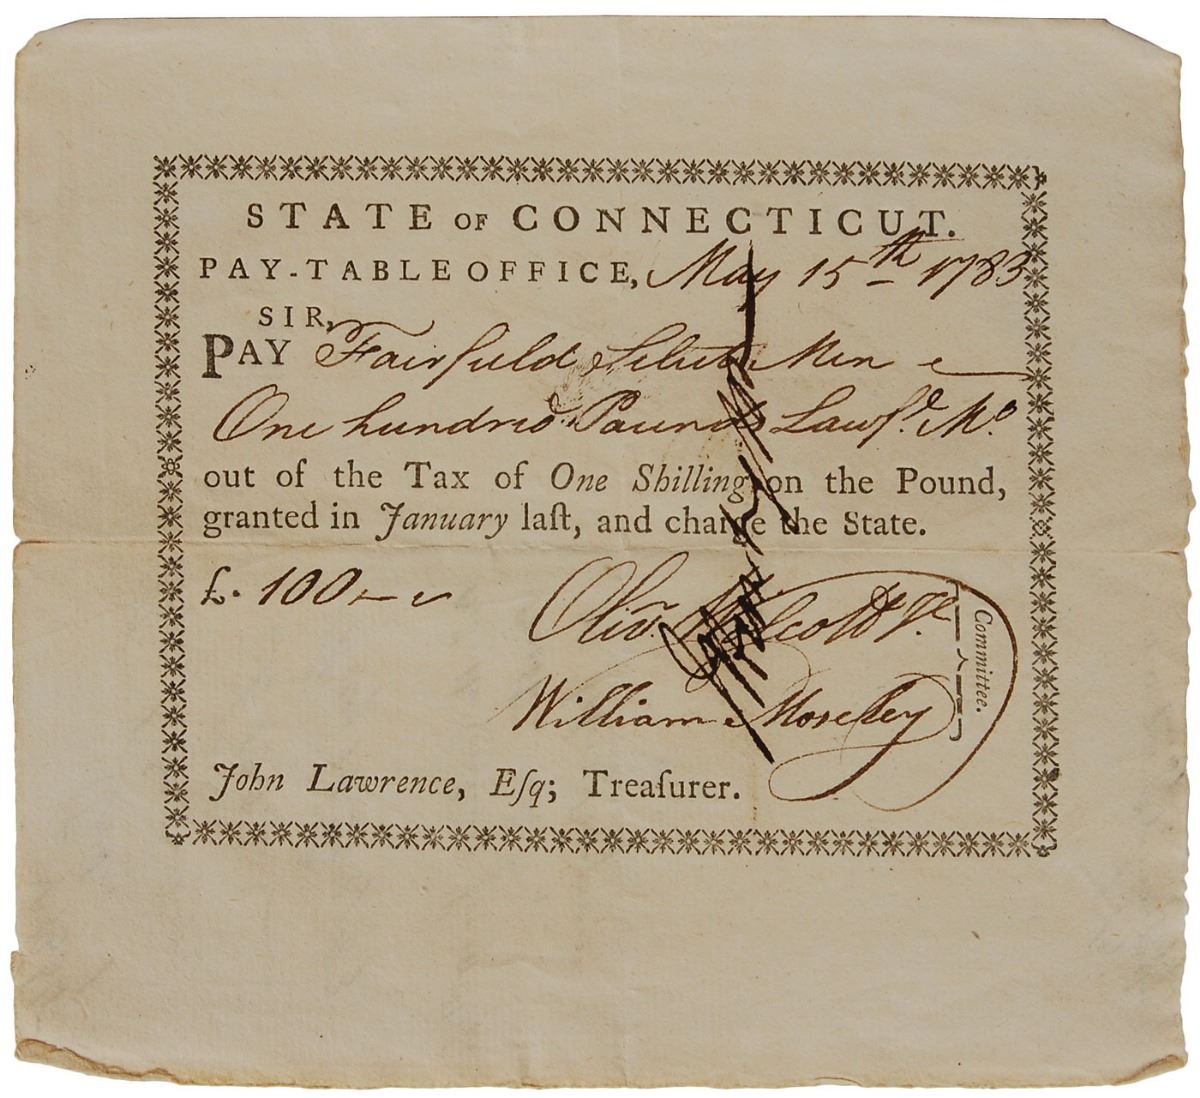 STATE OF CONNECTICUT.
PAY-TABLE OFFICE, May 15th 1783
SIR,
PAY Fairfield Select Men
One hundred Pounds Lawf.l M.o
out of the Tax of One Shilling on the Pound,
granted in January laſt, and charge the State.
£. 100 – –
Oliv.r Wolcott Jr.
William Moseley
Committee.
John Lawrence, Eſq; Treaſurer.